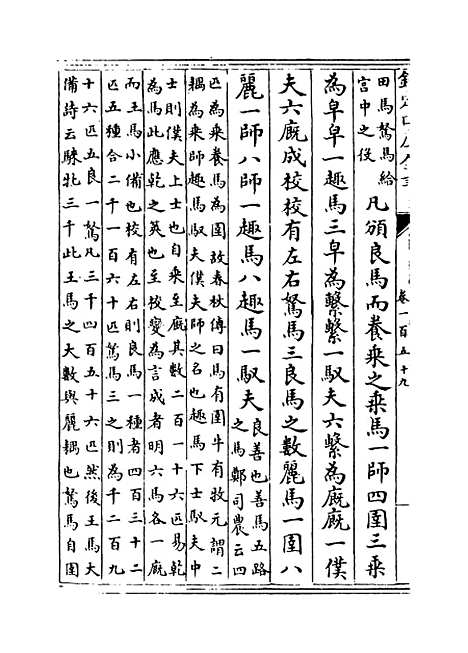 卷一百五十九
田馬駑馬給
宫中之役
凡頒良馬而養乘之乘馬一師四圉三乘
為皁皁一趣馬三皁為繫繫一馭夫六繫為廐廐一僕
夫六廐成校校有左右駑馬三良馬之數麗馬一圉八
麗一師八師一趣馬八趣馬一馭夫
良善也善馬五路
之馬鄭司農云四
匹為乘養馬為圉故春秋傳曰馬有圉牛有牧元謂二
耦為乘師趣馬馭夫僕夫師之名也趣馬下士馭夫中
士則僕夫上士也自乘至廐其數二百一十六匹易乾
為馬此應乾之筴也至校變為言成者明六馬各一廐
而王馬小備也校有左右則良馬一種者四百三十二
匹五種合二千一百六十匹駑馬三之則為千二百九
十六匹五良一駑凡三千四百五十六匹然後王馬大
備詩云騋牝三千此王馬之大數與麗耦也駑馬自圉